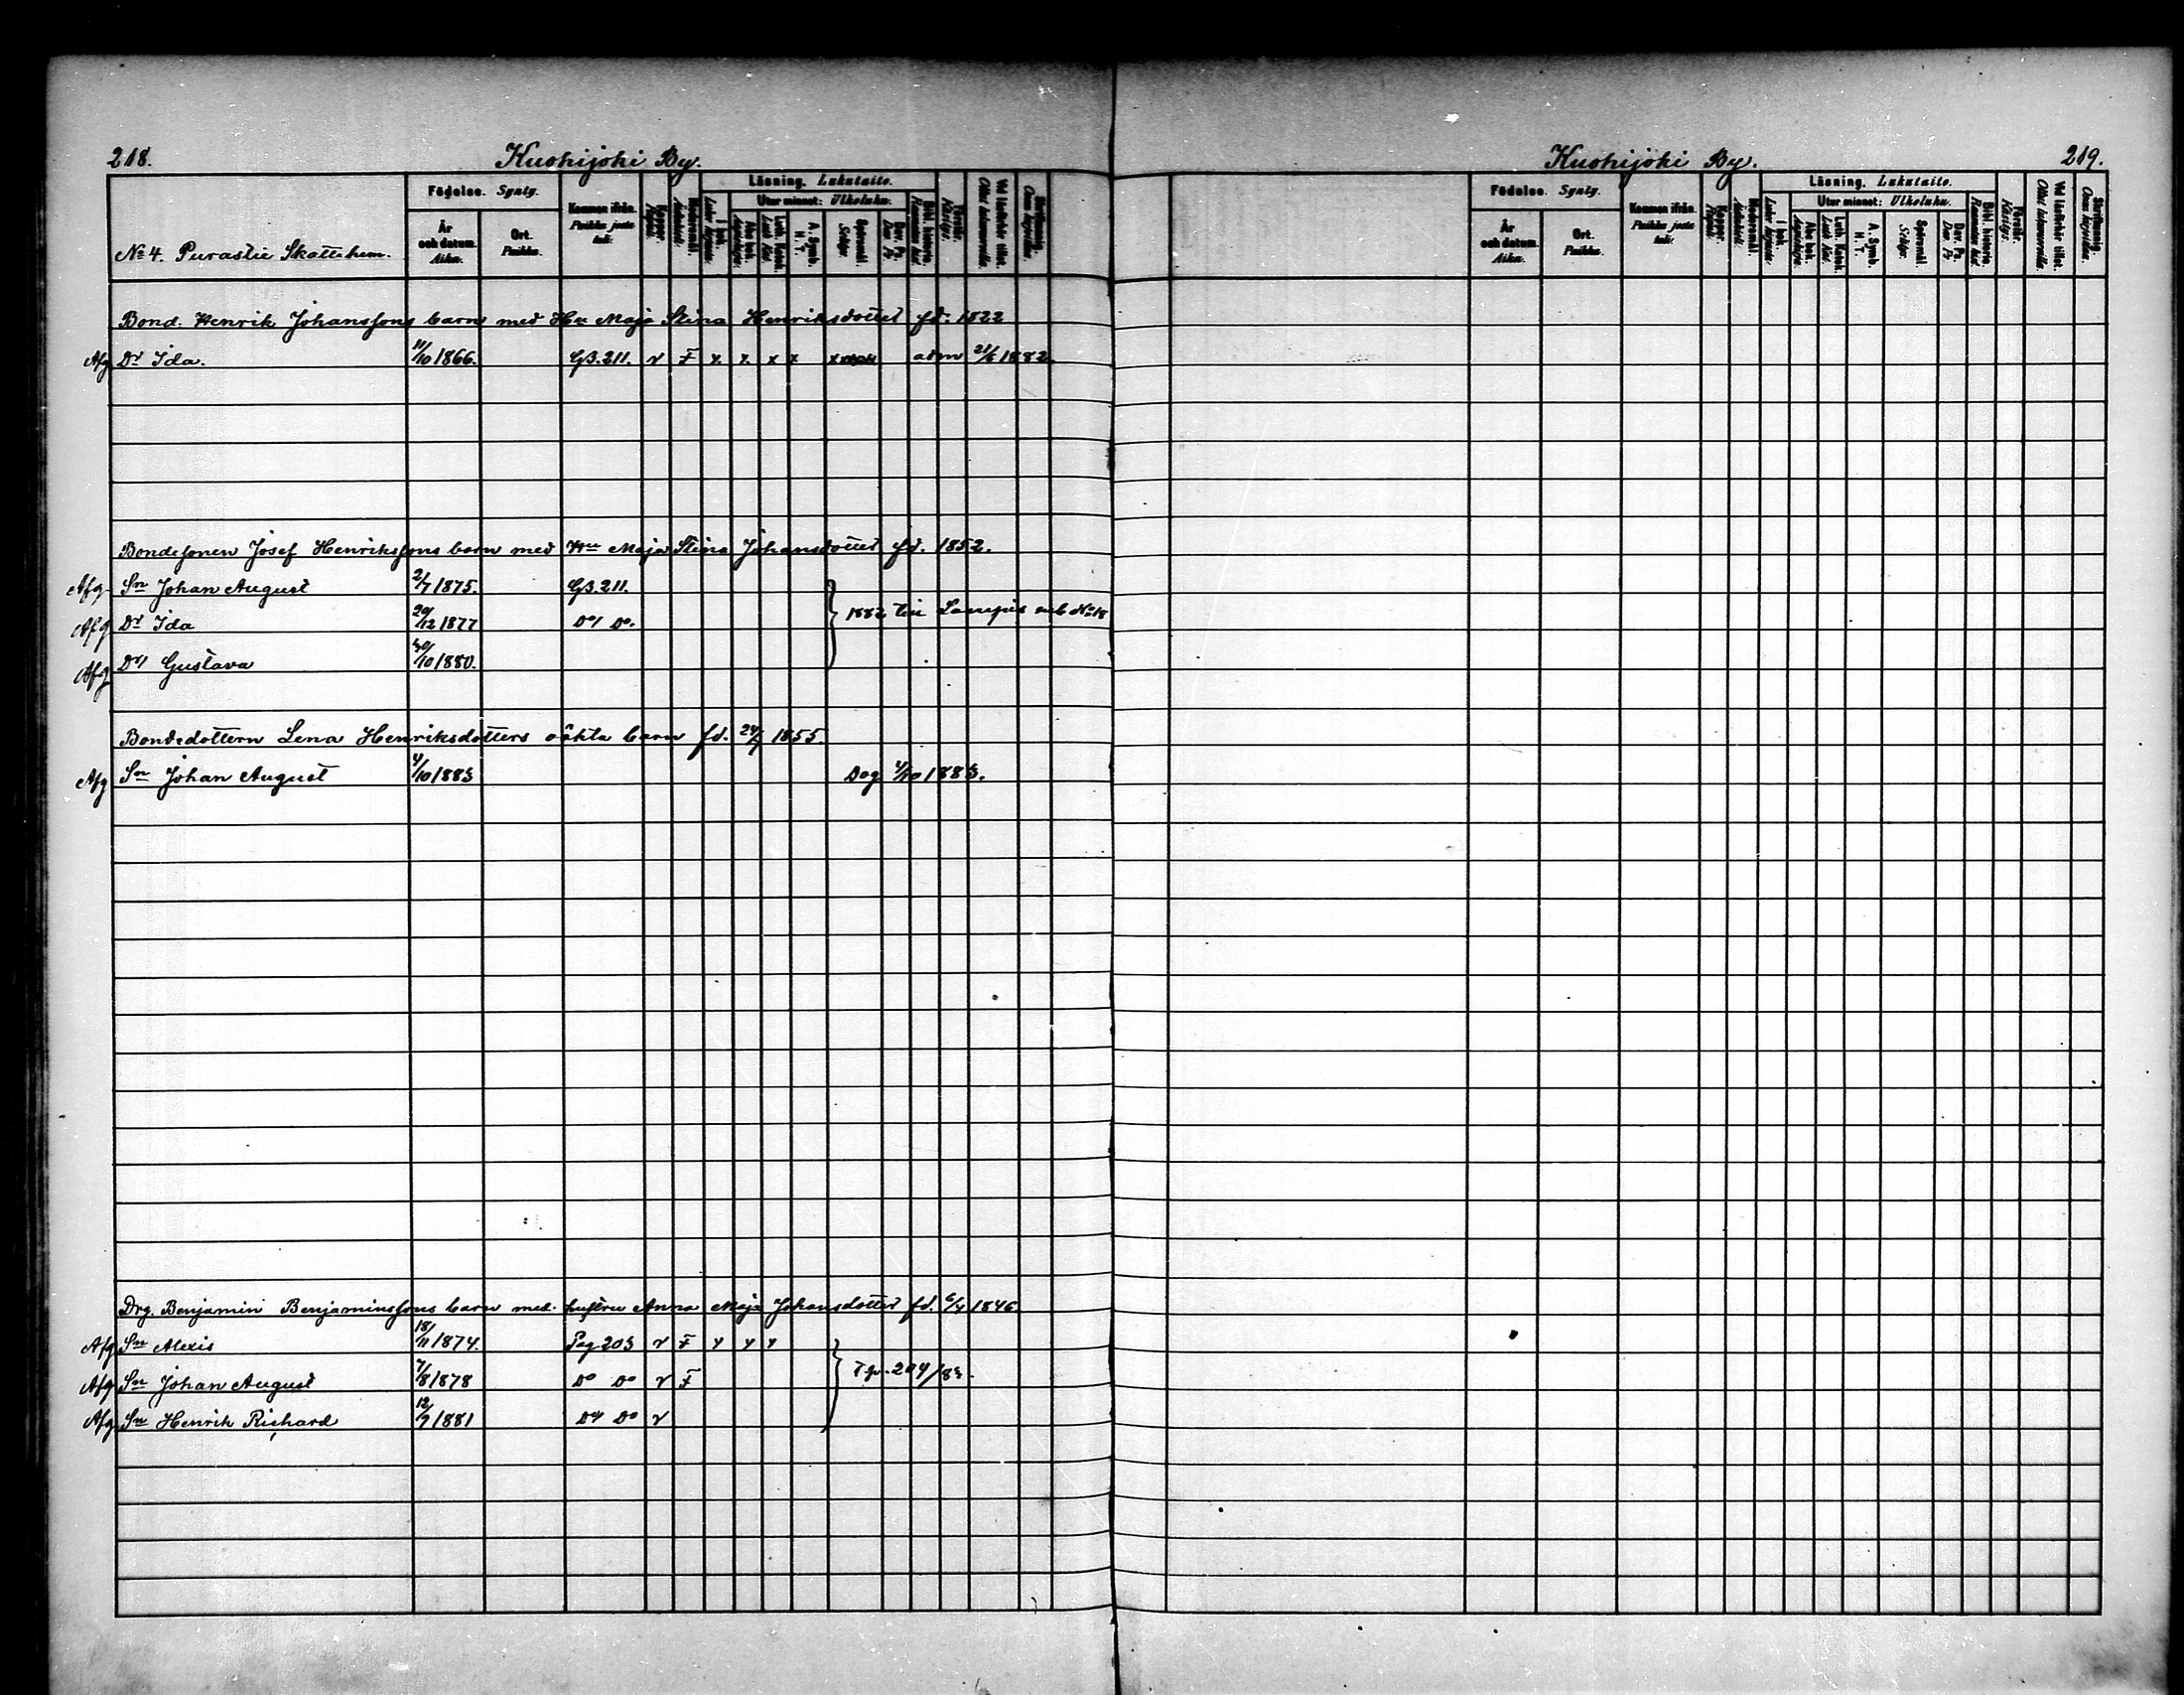 218. Kuohijoki By.
Kuohijoki By. 219.
No 4. Purastie Skattehem.
Födelse. Synty.
År och datum. Aika.
Ort. Paikka.
Kommen ifrån.
Koppor.
Läsning. Lukutaito.
I bok.
Utur minnet: Ulkoluku.
Aba bok.
Luth. Katek.
A. Symb. H. T.
Spörsmål.
Dav. Ps.
Bibl. historia.
Försvär.
Vid läsförhör tillst.
Skriftermålg.
Födelse. Synty.
År och datum. Aika.
Ort. Paikka.
Kommen ifrån.
Koppor.
Läsning. Lukutaito.
I bok.
Utur minnet: Ulkoluku.
Aba bok.
Luth. Katek.
A. Symb. H. T.
Spörsmål.
Dav. Ps.
Bibl. historia.
Bond. Henrik Johanssons barn med Hu Maja Stina Henriksdotter fd. 1822
Afg Dr Ida. 11/10 1866. GB. 211. v F x x x x x adm 21/6 1882.
Bondesonen Josef Henrikssons barn med Hu Maja Stina Johansdotter fd. 1852.
Afg Sn Johan August 2/7 1875. GB. 211.
Afg Dr Ida 20/12 1877 Do Do. 1882 till Lampis sub No 18
Afg Dr Gustava 30/10 1880.
Bondedottern Lena Henriksdotters oäkta barn fd. 24/7 1855.
Afg Sn Johan August 4/10 1883 Dog 4/10 1883.
Drg. Benjamin Benjaminssons barn med hustru Anna Maja Johansdotter fd. 6/4 1846
Afg Sn Alexis 18/11 1874. Pag 203 v F x x x
Afg Sn Johan August 7/8 1878 Do Do v F T. p. 204/83.
Afg Sn Henrik Richard 12/7 1881 Do Do v